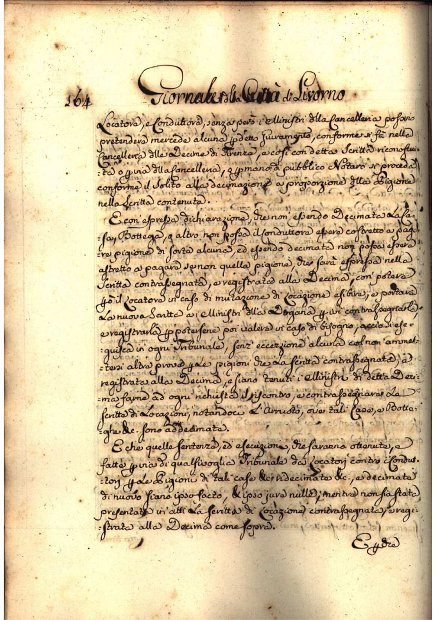 164 Giornale della Città di Livorno
Locatore, e Conduttore, senza però i Ministri della Cancelleria possino
pretendere mercede alcuna p detto giuramento, conforme si fà nella
Cancelleria delle Decime di Firenze, e così con detta Scritta riconosciu-
ta p via della Cancelleria, o p mano di pubblico Notaro si proceda
conforme il solito alla decimazione a proporzione della Pigione
nella Scritta contenuta.
E con espressa dichiarazione, che non essendo Decimata la Ca-
sa, ò Bottega, ò altro non possa il conduttore essere costretto a paga-
re pigione di sorta alcuna, ed essendo decimata non possa essere
astretto a pagare se non quella pigione che sarà espressa nella
Scritta contrassegnata, e registrata alla Decima, con potere
però il Locatore in caso di mutazione di Locazione esibire, e portare
la nuova Scritta a i Ministri della Dogana p ivi contrassegnarla
e registrarla p potersene poi valere in caso di bisogno, acciò si ese-
guisca in ogni Tribunale, senz' eccezzione alcuna col non ammet-
tersi altre prove p le pigioni che la scritta contrassegnata, e
registrata alla Decima, e siano tenuti i Ministri di detta Deci-
ma farne ad ogni richiesta il riscontro, e contrassegnare la
scritta di Locazione, notandoci l'Arruoto, ove tali Case, e Botte-
ghe &c. sono addecimate.
E che quelle sentenze, ed esecuzione, che saranno ottenute, e
fatte p via di qualsivoglia Tribunale da Locatori contro i Condut-
tori p le Pigioni di tali case &c. indecimate &c. e decimate
di nuovo siano ipso facto, & ipso jure nulle, mentre non sia stata
presentata in atti la Scritta di Locazione contrassegnata, e regi-
strata alla Decima come sopra.